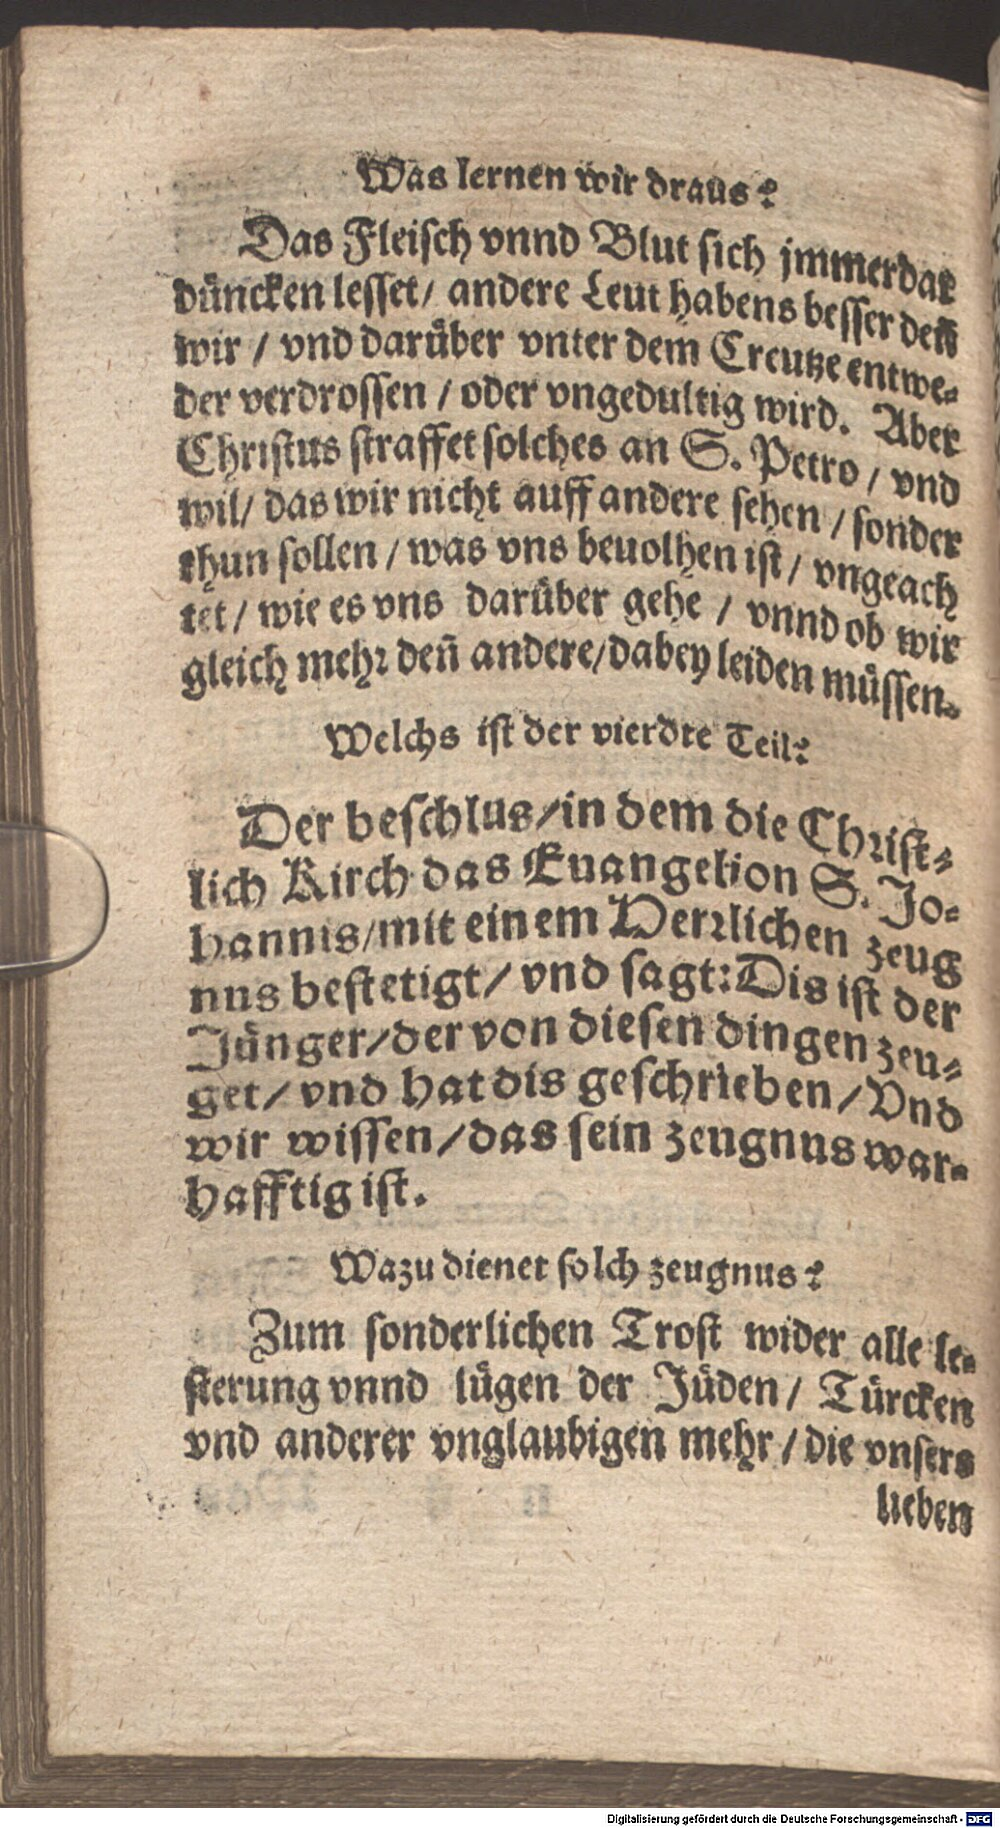 Was lernen wir draus?
Das Fleisch vnnd Blut sich jmmerdar
düncken lesset/ andere Leut habens besser deñ
wir / vnd darüber vnter dem Creutze entwe-
der verdrossen / oder vngedultig wird. Aber
Christus straffet solches an S. Petro / vnd
wil/ das wir nicht auff andere sehen / sonder
thun sollen / was vns beuolhen ist / vngeach
tet / wie es vns darüber gehe / vnnd ob wir
gleich mehr deñ andere/dabey leiden müssen.
Welchs ist der vierdte Teil?
Der beschlus/in dem die Christ-
lich Kirch das Euangelion S. Jo-
hannis/mit einem Herrlichen zeug
nus bestetigt/ vnd sagt:Dis ist der
Jünger/der von diesen dingen zeu-
get/ vnd hat dis geschrieben/Vnd
wir wissen/das sein zeugnus war-
hafftig ist.
Wazu dienet solch zeugnus?
Zum sonderlichen Trost wider alle le-
sterung vnnd lügen der Jüden/ Türcken
vnd anderer vnglaubigen mehr / die vnsers
lieben
Digitalisierung gefördert durch die Deutsche Forschungsgemeinschaft - DFG